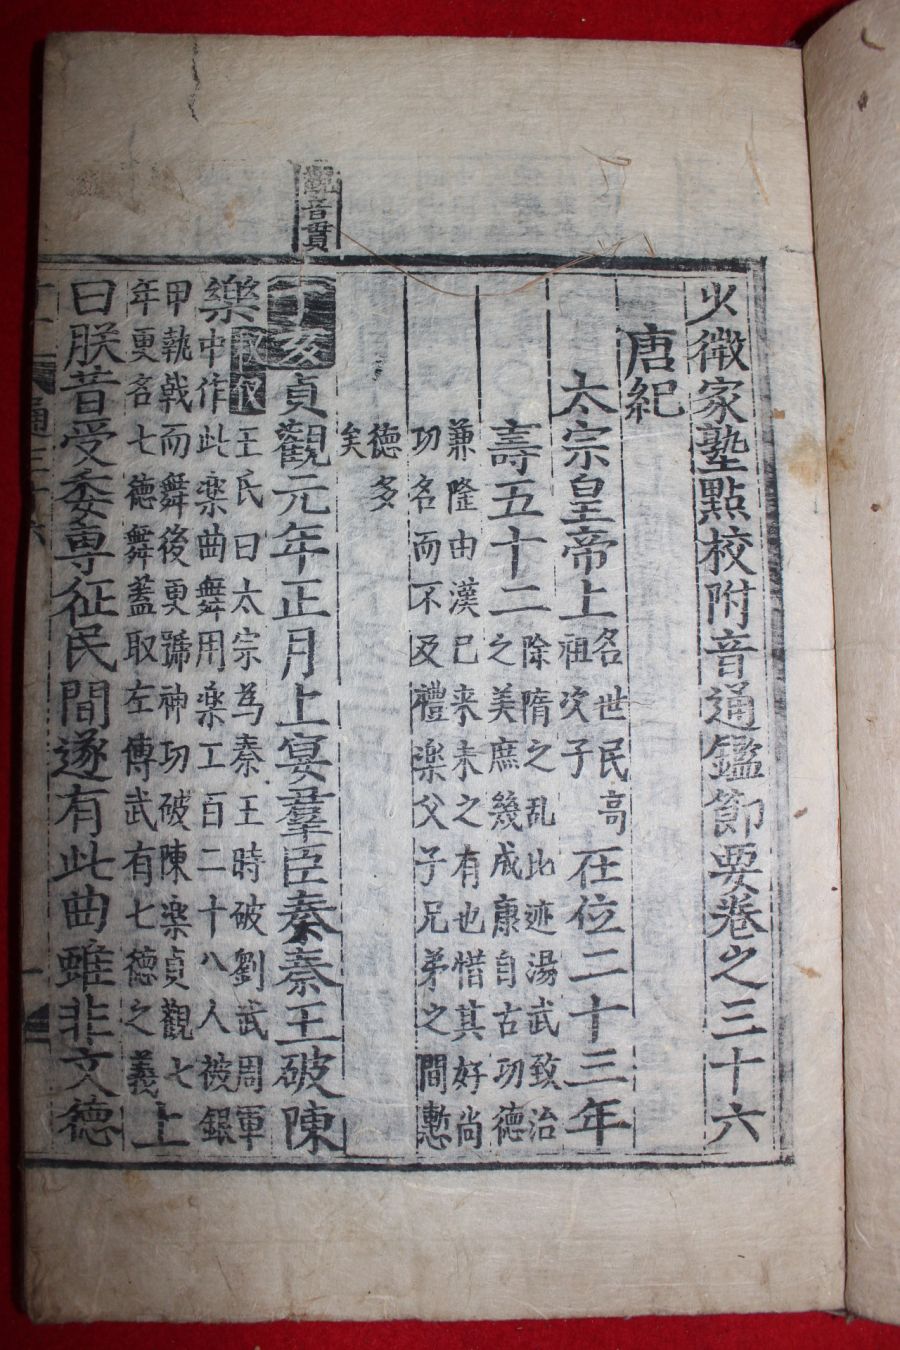 觀音貫
少微家塾點校附音通鑑節要卷之三十六
唐紀
太宗皇帝上名世民高祖次子在位二十三年
壽五十二除隋之乱比迹湯武致治之美庶幾成康自古功德
兼隆由漢已来未之有也惜其好尚功名而不及禮楽父子兄弟之間慙
德多矣
丁亥貞觀元年正月上宴羣臣奏秦王破陳
樂王氏曰太宗為秦王時破劉武周軍中作此楽曲舞用楽工百二十八人被銀
甲執戟而舞後更號神功破陳楽貞觀七年更名七德舞蓋取左傳武有七德之義上
曰朕昔受委專征民間遂有此曲雖非文德